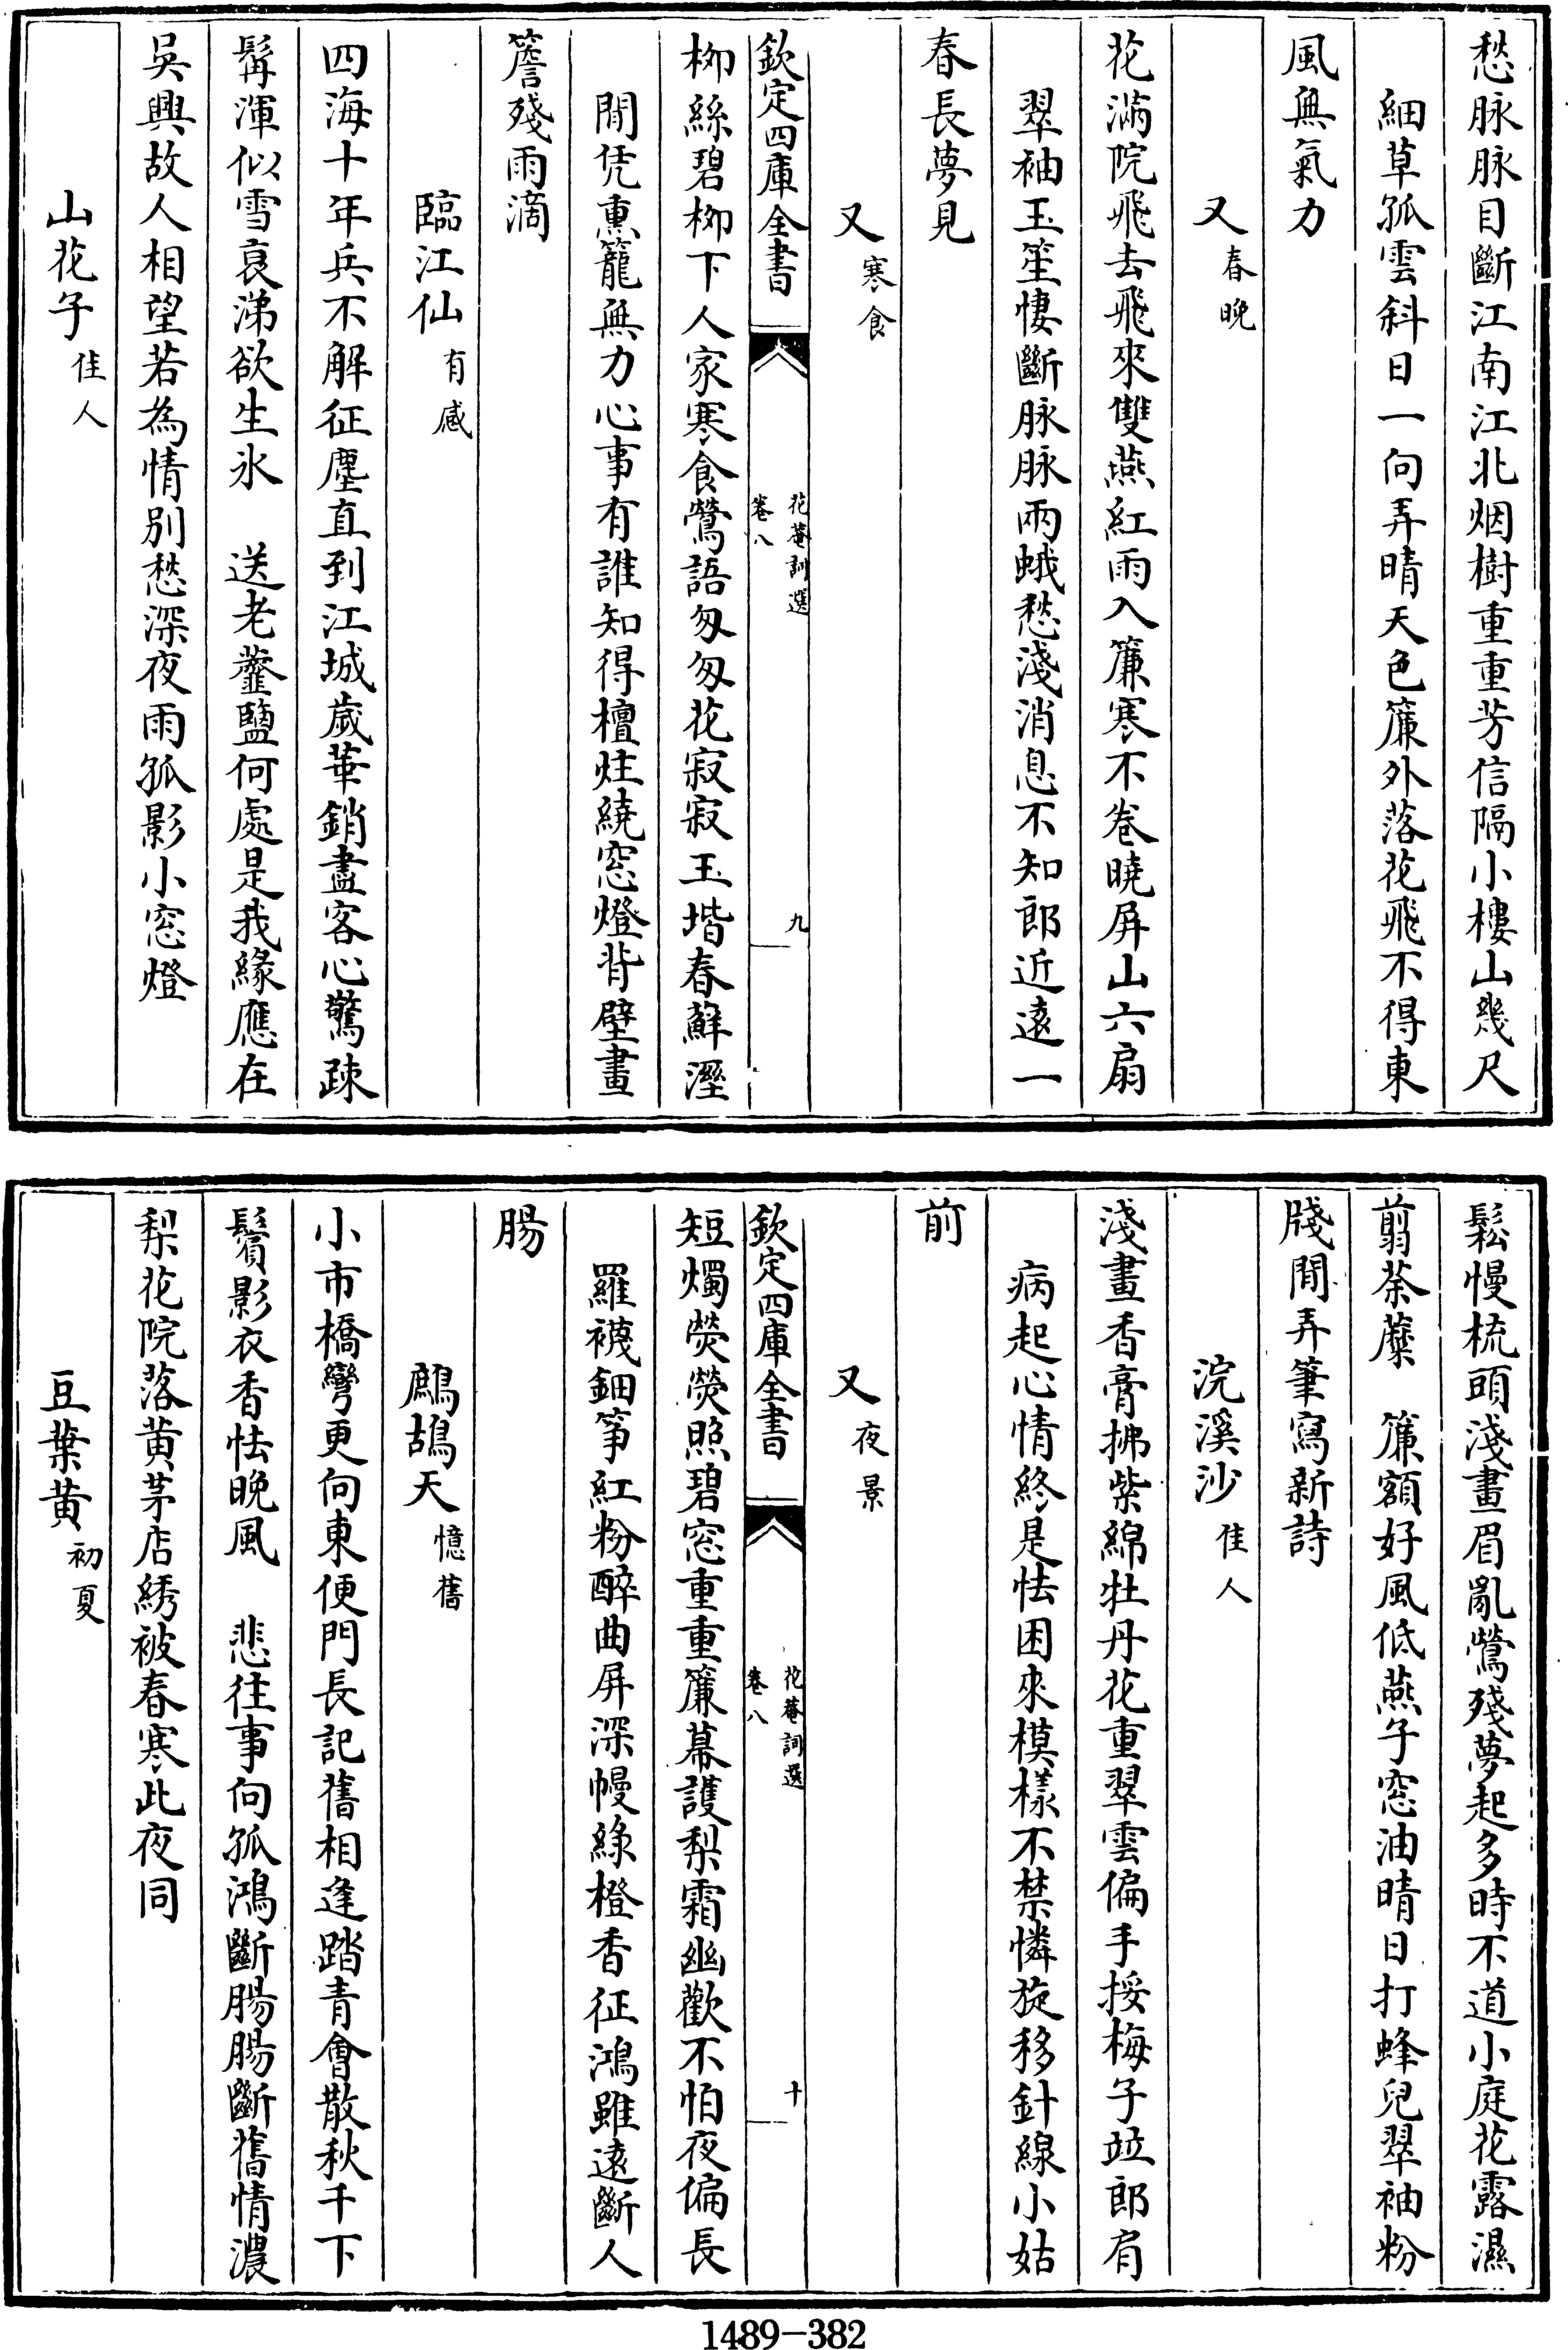 愁脉脉目斷江南江北烟樹重重芳信隔小樓山幾尺
細草孤雲斜日一向弄晴天色簾外落花飛不得東
風無氣力
又春晚
花滿院飛去飛來雙燕紅雨入簾寒不卷曉屏山六扇
翠袖玉笙悽斷脉脉兩蛾愁淺消息不知郎近遠一
春長夢見
又寒食
欽定四庫全書
花菴詞選
卷八
九
柳絲碧柳下人家寒食鶯語匆匆花寂寂玉堦春蘚溼
閒凭熏籠無力心事有誰知得檀炷繞窓燈背壁畫
簷殘雨滴
臨江仙有感
四海十年兵不解征塵直到江城歲華銷盡客心驚疎
髯渾似雪哀涕欲生氷 送老虀鹽何處是我緣應在
吳興故人相望若為情別愁深夜雨孤影小窓燈
山花子佳人
鬆慢梳頭淺畫眉亂鶯殘夢起多時不道小庭花露濕
翦荼蘼 簾額好風低燕子窓油晴日打蜂兒翠袖粉
牋閒弄筆寫新詩
浣溪沙佳人
淺畫香膏拂紫綿牡丹花重翠雲偏手挼梅子竝郎肩
病起心情終是怯困來模樣不禁憐旋移針線小姑
前
又夜景
欽定四庫全書
花菴詞選
卷八
十
短燭熒熒照碧窓重重簾幕護梨霜幽歡不怕夜偏長
羅襪鈿箏紅粉醉曲屏深幔綠橙香征鴻雖遠斷人
腸
鷓鴣天憶舊
小市橋彎更向東便門長記舊相逢踏青會散秋千下
鬢影衣香怯晚風 悲往事向孤鴻斷腸腸斷舊情濃
梨花院落黃茅店綉被春寒此夜同
豆葉黃初夏
1489-382